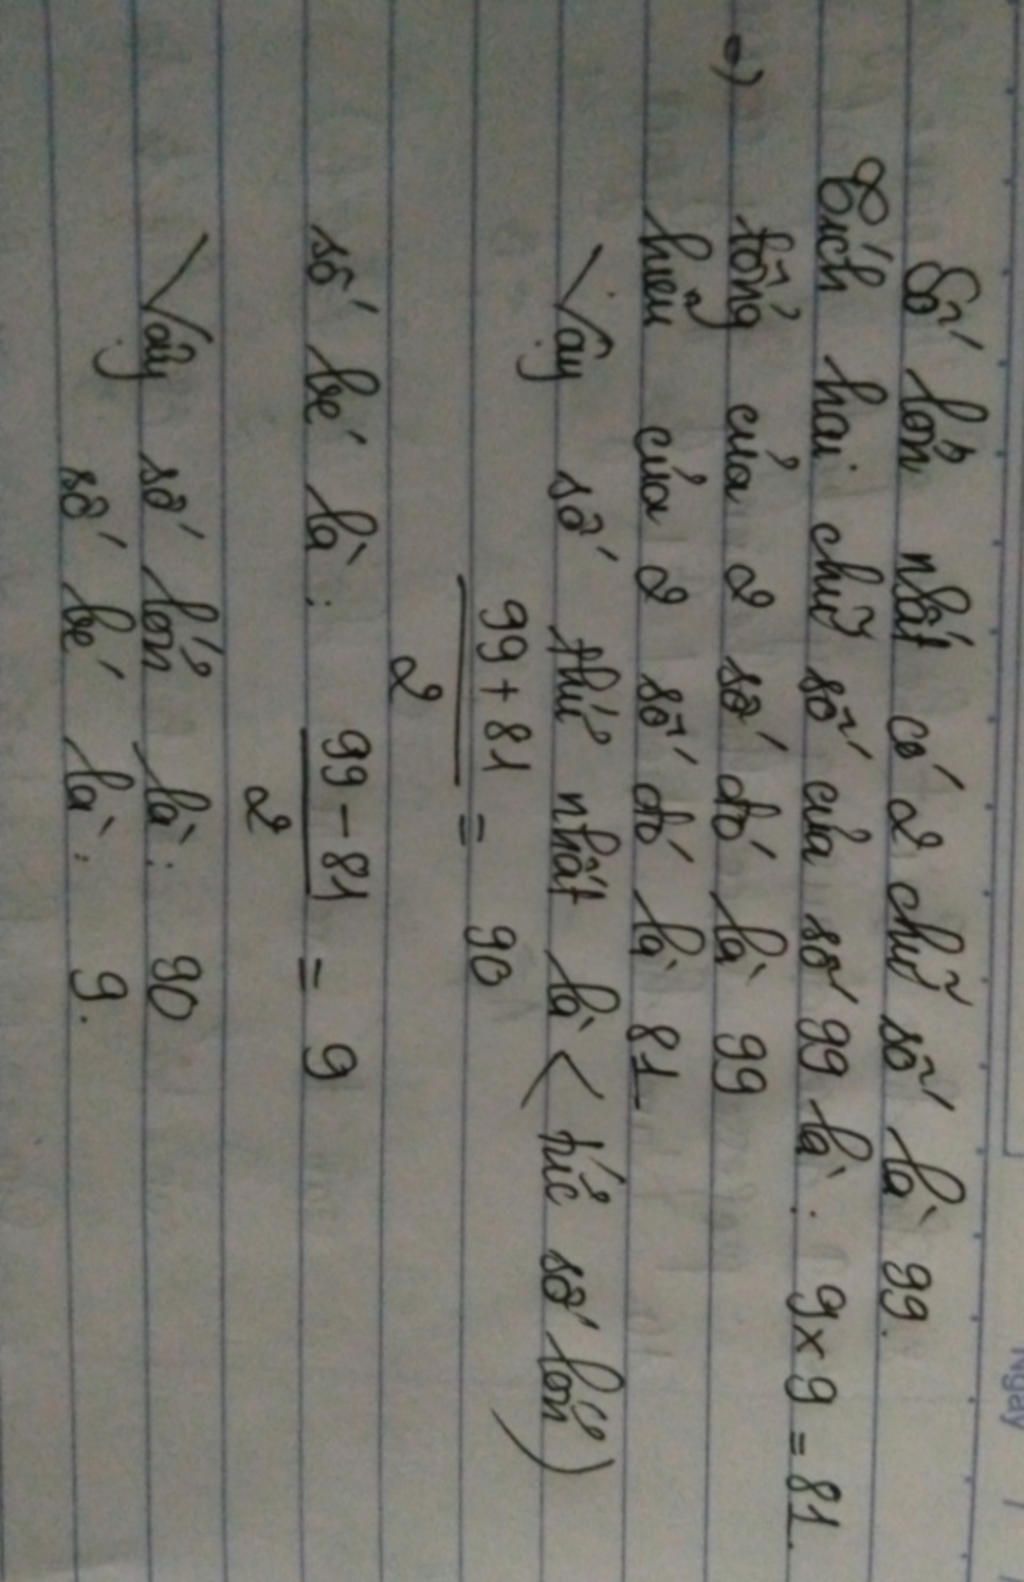 Số lớn nhất có 2 chữ số là 99.
Tích hai chữ số của số 99 là: 9 x 9 = 81
=) tổng của 2 số đó là 99
hiệu của 2 số đó là 81
Vậy số thứ nhất là (tức số lớn)
99 + 81 / 2 = 90
số bé là: 99 - 81 / 2 = 9
Vậy số lớn là: 90
số bé là: 9.
Ngày /